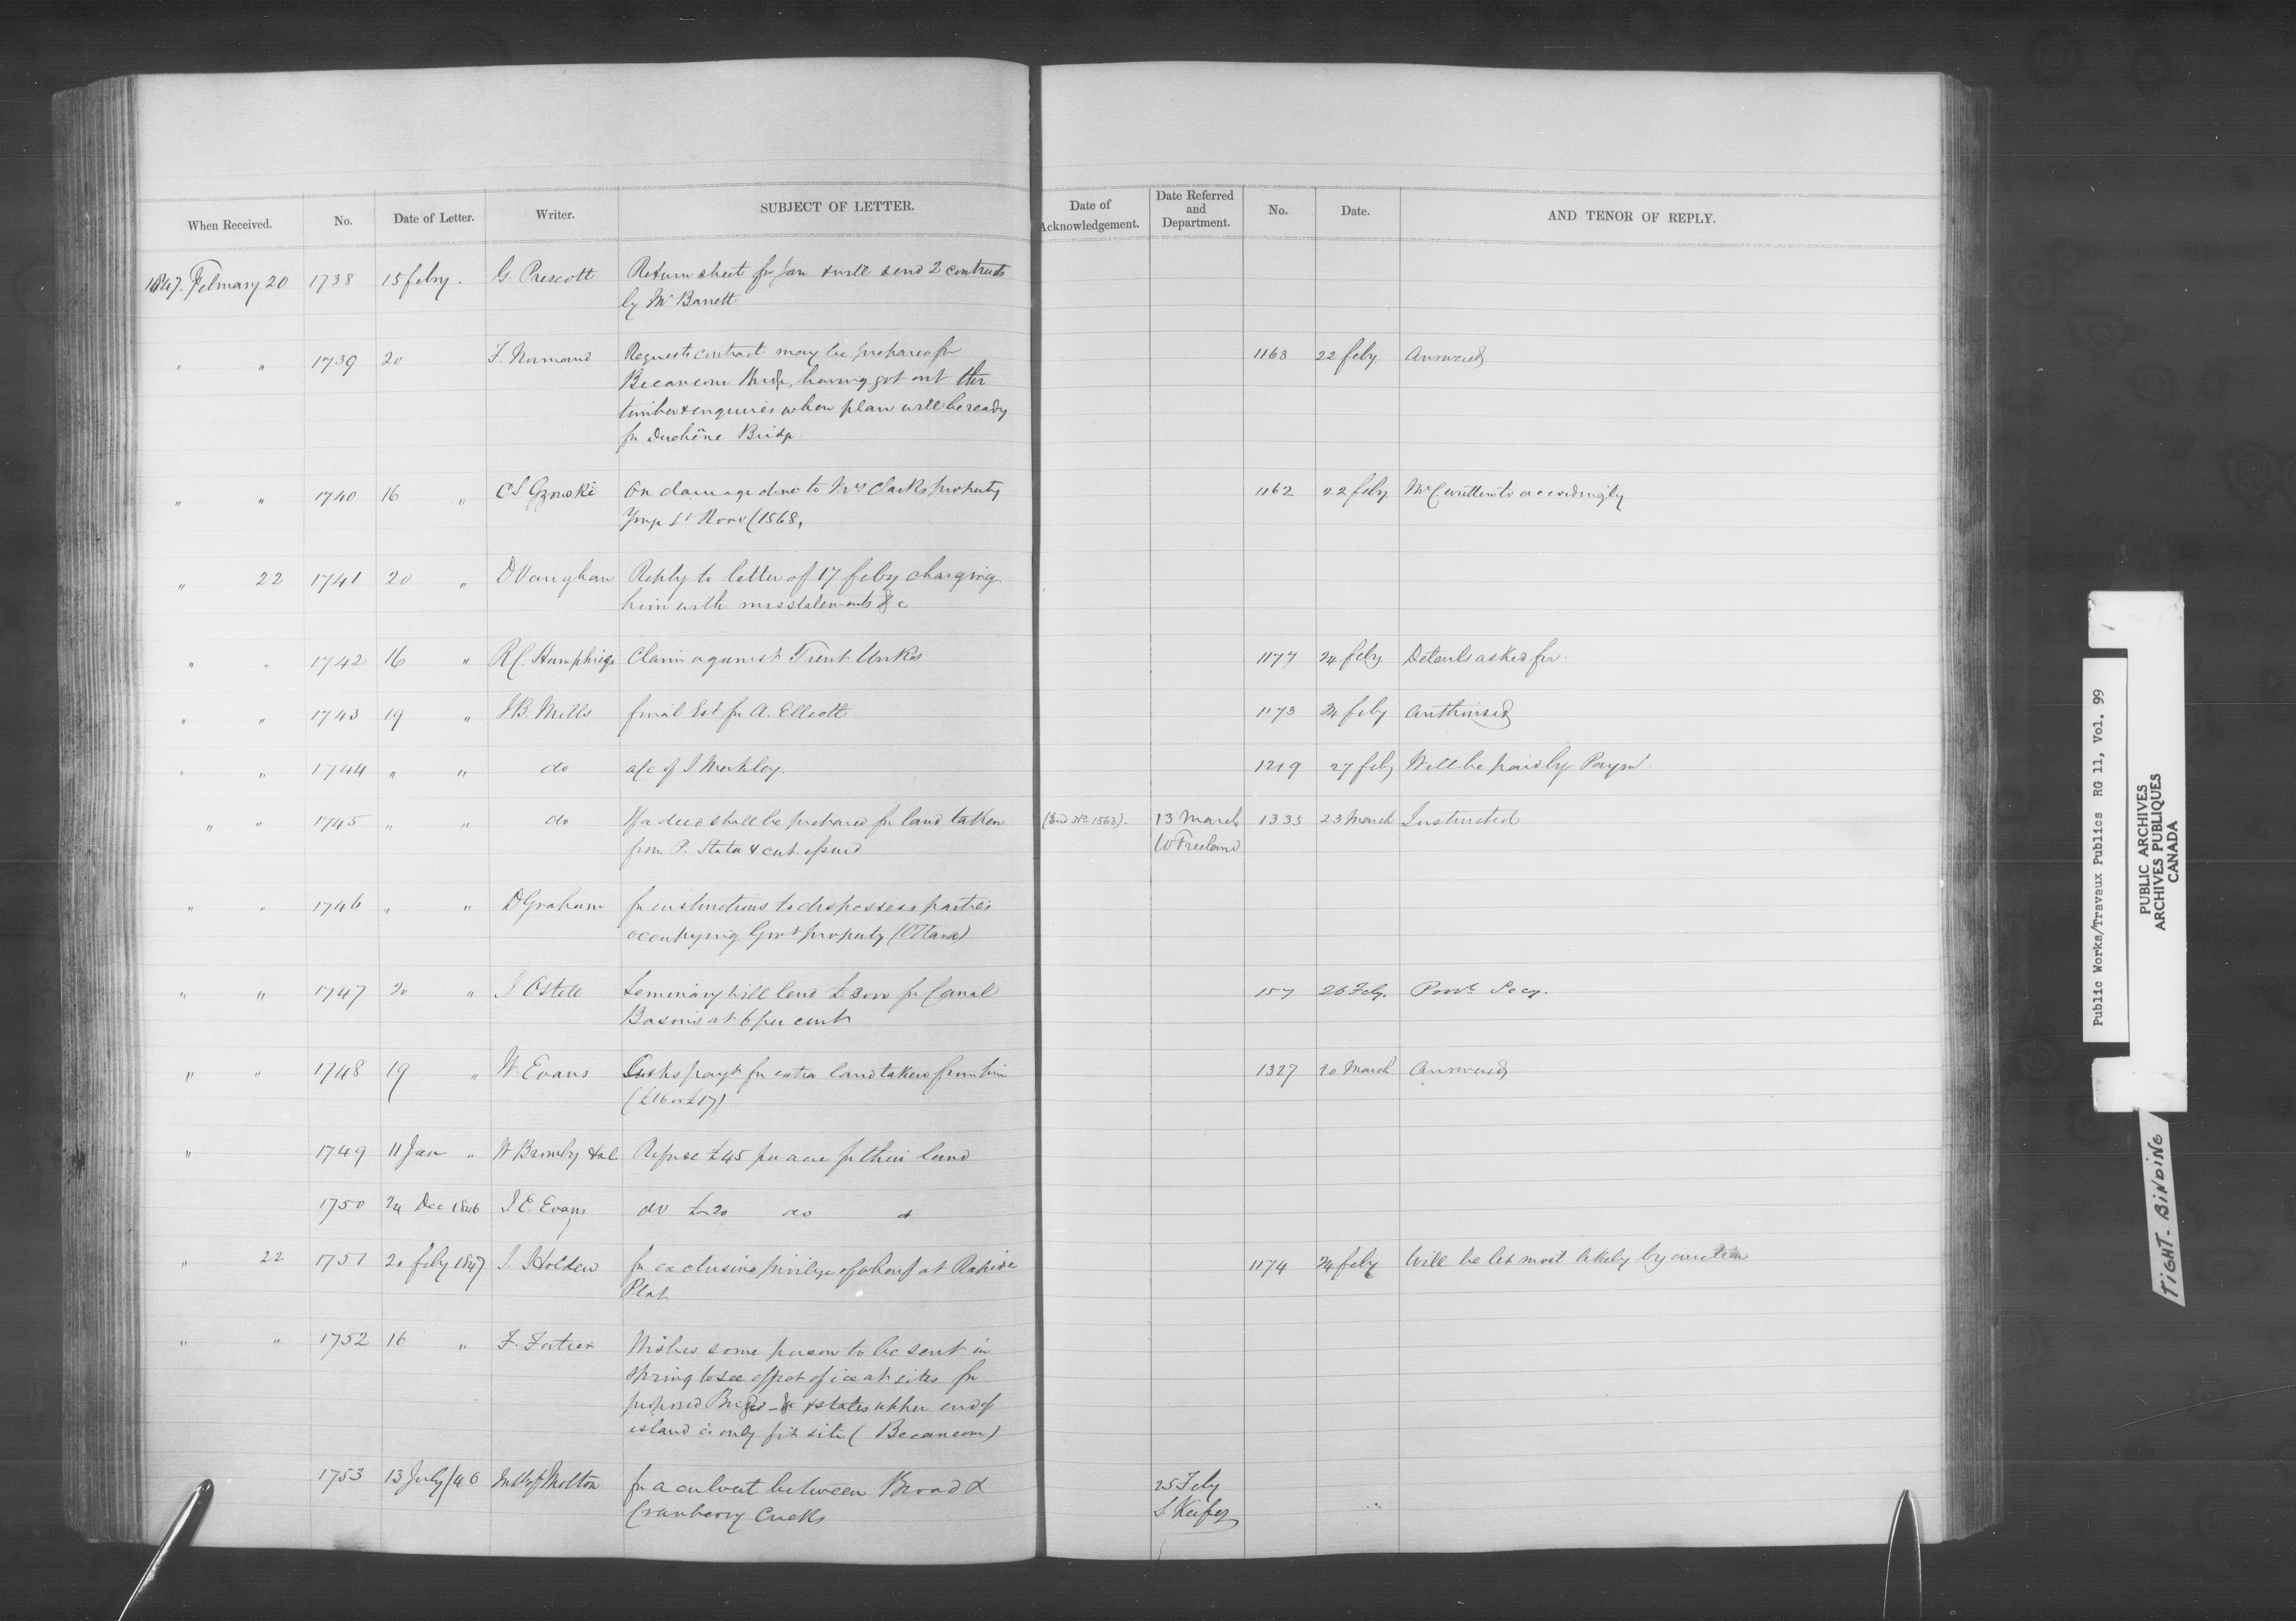 When Received. No. Date of Letter. Writer. SUBJECT OF LETTER. Date of Acknowledgement. Date Referred and Department. No. Date. AND TENOR OF REPLY.
1847. February 20 1738 15 feby. G. Prescott Return sheet for Jan & will send 2 contracts
by Mr Barrett
" " 1739 20 F. Normand Requests contract may be prepared for 1163 22 feby Answered
Becancour Bridge, having got out the
timber & enquires when plan will be ready
for Duchêne Bridge
" " 1740 16 " C S Gzowski On damage done to Mrs Clarks property 1162 22 feby Mr C written to accordingly
Yonge St Road (1568,
" 22 1741 20 " D Vaughan Reply to letter of 17 feby charging
him with misstatements &c
" " 1742 16 " R C. Humphries Claim against Trent Works 1177 24 feby Details asked for.
" " 1743 19 " J. B. Mills final Est for A. Elliott 1173 24 feby Authorised
" " 1744 " " do a/c of J. Merkley. 1219 27 feby Will be paid by Paymt.
" " 1745 " " do If a deed shall be prepared for land taken (See No 1563). 13 March 1335 23 March Instructed
from P. Stata & cert. issued W Freeland
" " 1746 " " D Graham for instructions to dispossess parties
occupying Govt property (Ottawa)
" " 1747 20 " J Ostell Seminary will lend £3000 for Canal 157 26 Feby. Provl Secy.
Basins at 6 per cent
" " 1748 19 " W. Evans Asks payt for extra land taken from him 1327 20 March Answered
(£16 or £17)
" 1749 11 Jan " W Bromby & al Refuse £45 per acre for their land
1750 24 Dec 1846 J. E. Evans do £20 do
" 22 1751 20 feby 1847 J. Holden for exclusive privilege of wharf at Rapide 1174 24 feby Will be let most likely by auction
Plat
" " 1752 16 " F. Fortier Wishes some person to be sent in
Spring to see effect of ice at sites for
proposed Bridges &c & states upper end of
island is only fit site (Becancour)
1753 13 July/46 Moulton for a culvert between Broad & 25 Feby
Cranberry Creeks S. Keefer
Public Works/Travaux Publics RG 11, Vol. 99
PUBLIC ARCHIVES
ARCHIVES PUBLIQUES
CANADA
TIGHT-BINDING